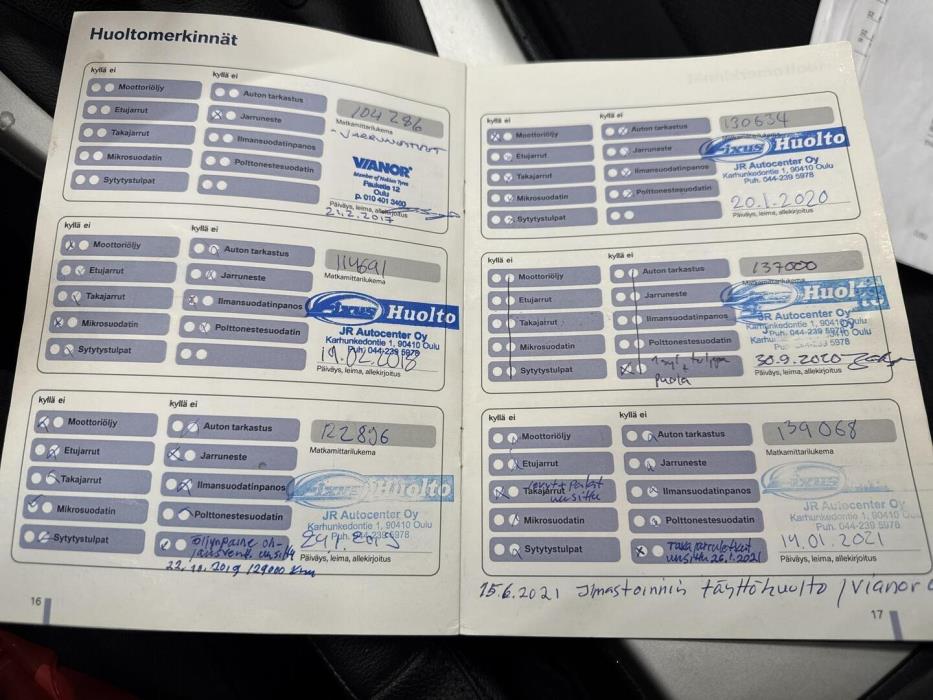 Huoltomerkinnät
kyllä ei
kyllä ei
Moottoriöljy
Etujarrut
Takajarrut
Mikrosuodatin
Sytytystulpat
Auton tarkastus
Jarruneste
Ilmansuodatinpanos
Polttonestesuodatin
104 286
Matkamittarilukema
VIANOR
Member of Nokian Tyres
Paukatie 12
Oulu
p. 010 401 3400
Päiväys, leima, allekirjoitus
21.2.2017
kyllä ei
kyllä ei
Moottoriöljy
Etujarrut
Takajarrut
Mikrosuodatin
Sytytystulpat
Auton tarkastus
Jarruneste
Ilmansuodatinpanos
Polttonestesuodatin
114691
Matkamittarilukema
Fixus Huolto
JR Autocenter Oy
Karhunkedontie 1, 90410 Oulu
Puh. 044-239 5978
19.02.2018
Päiväys, leima, allekirjoitus
kyllä ei
kyllä ei
Moottoriöljy
Etujarrut
Takajarrut
Mikrosuodatin
Sytytystulpat
Auton tarkastus
Jarruneste
Ilmansuodatinpanos
Polttonestesuodatin
122896
Matkamittarilukema
Fixus Huolto
JR Autocenter Oy
Karhunkedontie 1, 90410 Oulu
Puh. 044-239 5978
Päiväys, leima, allekirjoitus
22.10.2019 / 129000 km
16
kyllä ei
kyllä ei
Moottoriöljy
Etujarrut
Takajarrut
Mikrosuodatin
Sytytystulpat
Auton tarkastus
Jarruneste
Ilmansuodatinpanos
Polttonestesuodatin
130634
Matkamittarilukema
Fixus Huolto
JR Autocenter Oy
Karhunkedontie 1, 90410 Oulu
Puh. 044-239 5978
20.1.2020
Päiväys, leima, allekirjoitus
kyllä ei
kyllä ei
Moottoriöljy
Etujarrut
Takajarrut
Mikrosuodatin
Sytytystulpat
Auton tarkastus
Jarruneste
Ilmansuodatinpanos
Polttonestesuodatin
puola
137000
Matkamittarilukema
Fixus Huolto
JR Autocenter Oy
Karhunkedontie 1, 90410 Oulu
Puh. 044-239 5978
30.9.2020
Päiväys, leima, allekirjoitus
kyllä ei
kyllä ei
Moottoriöljy
Etujarrut
Takajarrut
uusittu
Mikrosuodatin
Sytytystulpat
Auton tarkastus
Jarruneste
Ilmansuodatinpanos
Polttonestesuodatin
Takajarruletkut
uusittu 26.1.2021
139068
Matkamittarilukema
Fixus
JR Autocenter Oy
Karhunkedontie 1, 90410 Oulu
Puh. 044-239 5978
14.01.2021
Päiväys, leima, allekirjoitus
15.6.2021 Ilmastoinnin täyttöhuolto / Vianor
17